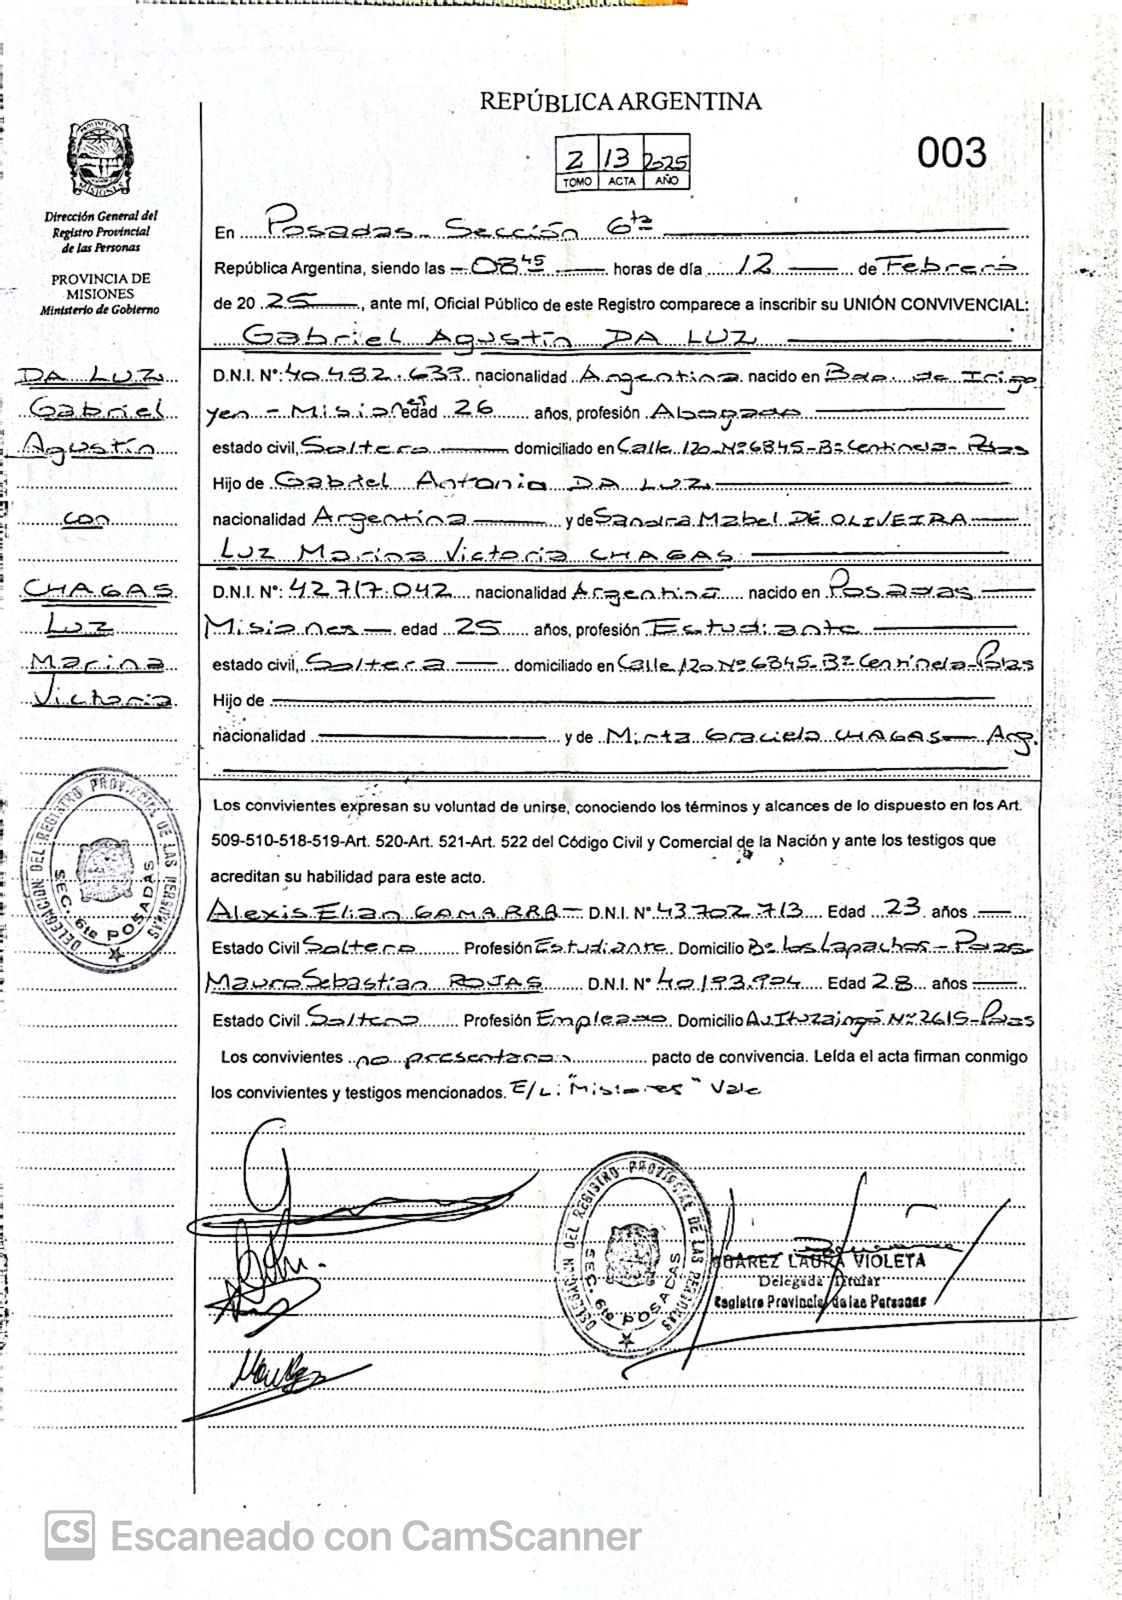 REPÚBLICA ARGENTINA
2 13 2025
TOMO ACTA AÑO
003
Dirección General del
Registro Provincial
de las Personas
PROVINCIA DE
MISIONES
Ministerio de Gobierno
En Posadas - Sección 6ta
República Argentina, siendo las 08 45 horas de día 12 de Febrero
de 20 25, ante mí, Oficial Público de este Registro comparece a inscribir su UNIÓN CONVIVENCIAL:
Gabriel Agustín DA LUZ
DA LUZ
Gabriel
Agustín
con
CHAGAS
Luz
Marina
Victoria
D.N.I. Nº: 40.482.639 nacionalidad Argentina nacido en Bdo. de Irigo
yen - Misiones edad 26 años, profesión Abogado
estado civil, Soltero domiciliado en Calle 120 Nº 6845-Bº Centinela-Pdas
Hijo de Gabriel Antonio DA LUZ
nacionalidad Argentina y de Sandra Mabel DE OLIVEIRA
Luz Marina Victoria CHAGAS
D.N.I. Nº: 42.717.042 nacionalidad Argentina nacido en Posadas
Misiones edad 25 años, profesión Estudiante
estado civil, Soltera domiciliado en Calle 120 Nº 6845-Bº Centinela-Pdas
Hijo de
nacionalidad y de Mirta Graciela CHAGAS - Arg.
Los convivientes expresan su voluntad de unirse, conociendo los términos y alcances de lo dispuesto en los Art.
509-510-518-519-Art. 520-Art. 521-Art. 522 del Código Civil y Comercial de la Nación y ante los testigos que
acreditan su habilidad para este acto.
Alexis Elian GAMARRA - D.N.I. Nº 43.702.713 Edad 23 años
Estado Civil Soltero Profesión Estudiante Domicilio Bº Los Lapachos - Pdas
Mauro Sebastian ROJAS D.N.I. Nº 40.193.994 Edad 28 años
Estado Civil Soltero Profesión Empleado Domicilio Av Ituzaingó Nº 2615-Pdas
Los convivientes no presentaron pacto de convivencia. Leída el acta firman conmigo
los convivientes y testigos mencionados. E/L: "Misiones" Vale
DELEGACION DEL REGISTRO PROVINCIAL DE LAS PERSONAS
SEC. 6ta POSADAS
DELEGACION DEL REGISTRO PROVINCIAL DE LAS PERSONAS
SEC. 6ta POSADAS
LAURA VIOLETA
Delegada Titular
Registro Provincial de las Personas
CS Escaneado con CamScanner